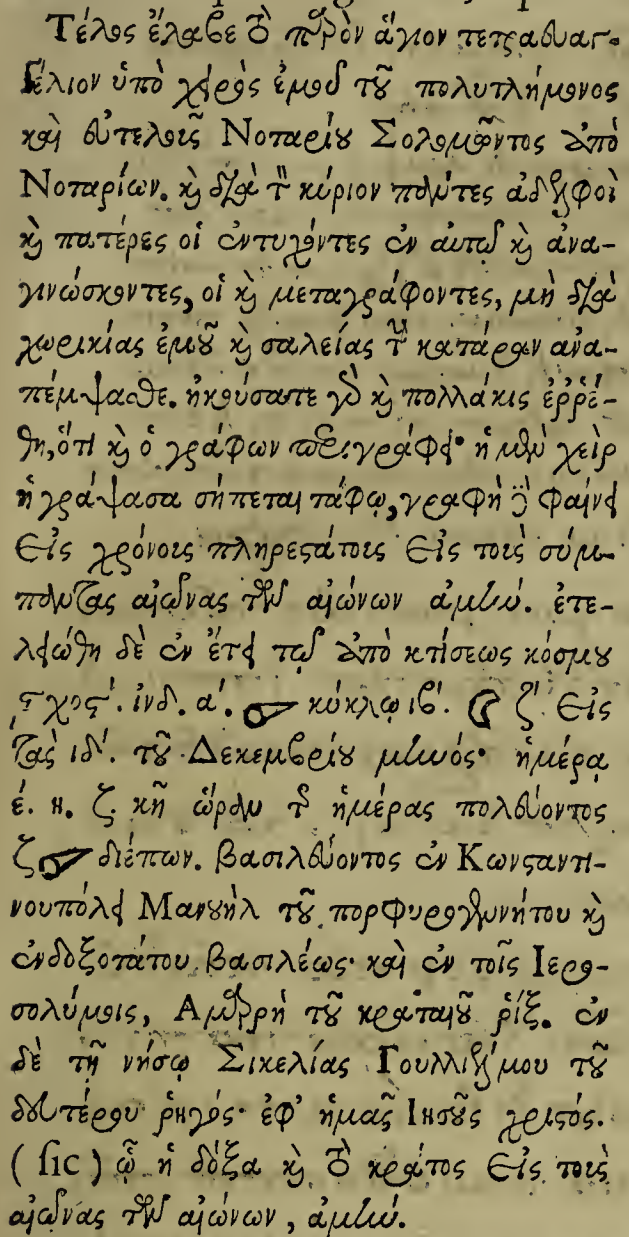 Τέλος ἔλαβε τὸ παρὸν ἅγιον τετραευαγ-
γέλιον ὑπὸ χειρὸς ἐμοῦ τοῦ πολυτλήμονος
καὶ εὐτελοῦς Νοταρίου Σολομῶντος ἀπὸ
Νοταρίων. καὶ διὰ τὸν κύριον πάντες ἀδελφοὶ
καὶ πατέρες οἱ ἐντυχόντες ἐν αὐτῷ καὶ ἀνα-
γινώσκοντες, οἱ καὶ μεταγράφοντες, μὴ διὰ
χωρικίας ἐμοῦ καὶ σαλείας τὴν κατάραν ἀνα-
πέμψασθε. ἠκούσατε γὰρ καὶ πολλάκις ἐῤῥέ-
θη, ὅτι καὶ ὁ γράφων παραγράφει· ἡ μὲν χεὶρ
ἡ γράψασα σήπεται τάφῳ, γραφὴ δὲ φαίνει
εἰς χρόνοις πληρεστάτοις εἰς τοὺς σύμ-
παντας αἰῶνας τῶν αἰώνων ἀμήν. ἐτε-
λειώθη δὲ ἐν ἔτει τῷ ἀπὸ κτίσεως κόσμου
͵ϛχοϛʹ. ἰνδ. αʹ. κύκλῳ ιβʹ. ζʹ. εἰς
τὰς ιδʹ. τοῦ Δεκεμβρίου μηνός· ἡμέρα
έ. η. ζ. κῆ ὥραν τῆς ἡμέρας πολεύοντος
ζ διέπων. βασιλεύοντος ἐν Κωνσταντι-
νουπόλει Μανουὴλ τοῦ πορφυρογεννήτου καὶ
ἐνδοξοτάτου βασιλέως· καὶ ἐν τοῖς Ιερο-
σολύμοις, Αμερρὴ τοῦ κραταιοῦ ῥίξ. ἐν
δὲ τῇ νήσῳ Σικελίας Γουλλιέλμου τοῦ
δευτέρου ῥηγός· ἐφ' ἡμᾶς Ιησοῦς χριστός.
(sic) ᾧ ἡ δόξα καὶ τὸ κράτος εἰς τοὺς
αἰῶνας τῶν αἰώνων, ἀμήν.